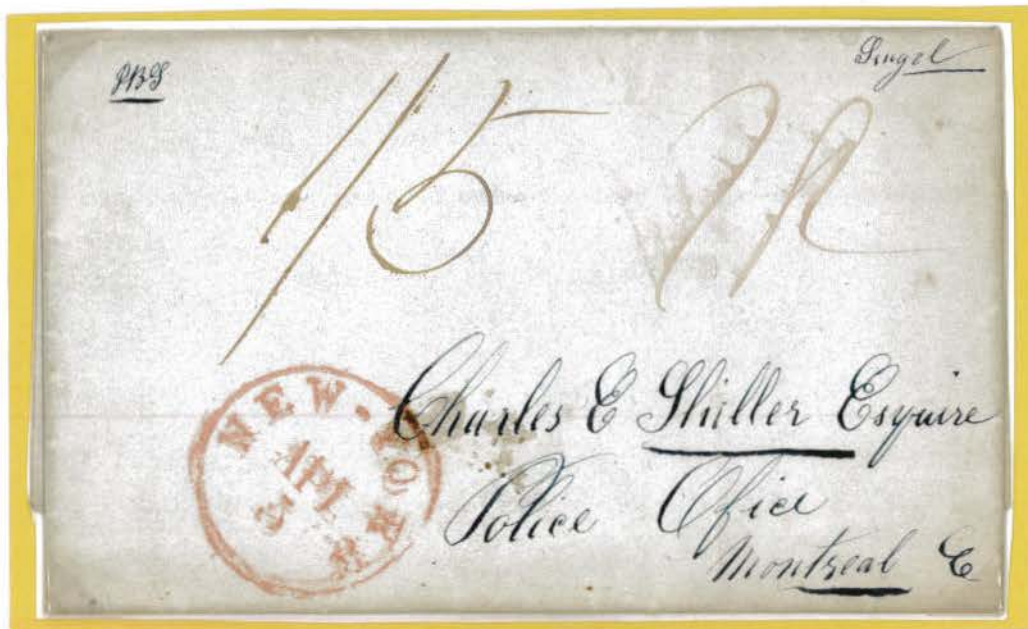 Singel
1/5
NEW-YORK
APL
Charles E Shiller Esquire
Police Ofice
Montreal